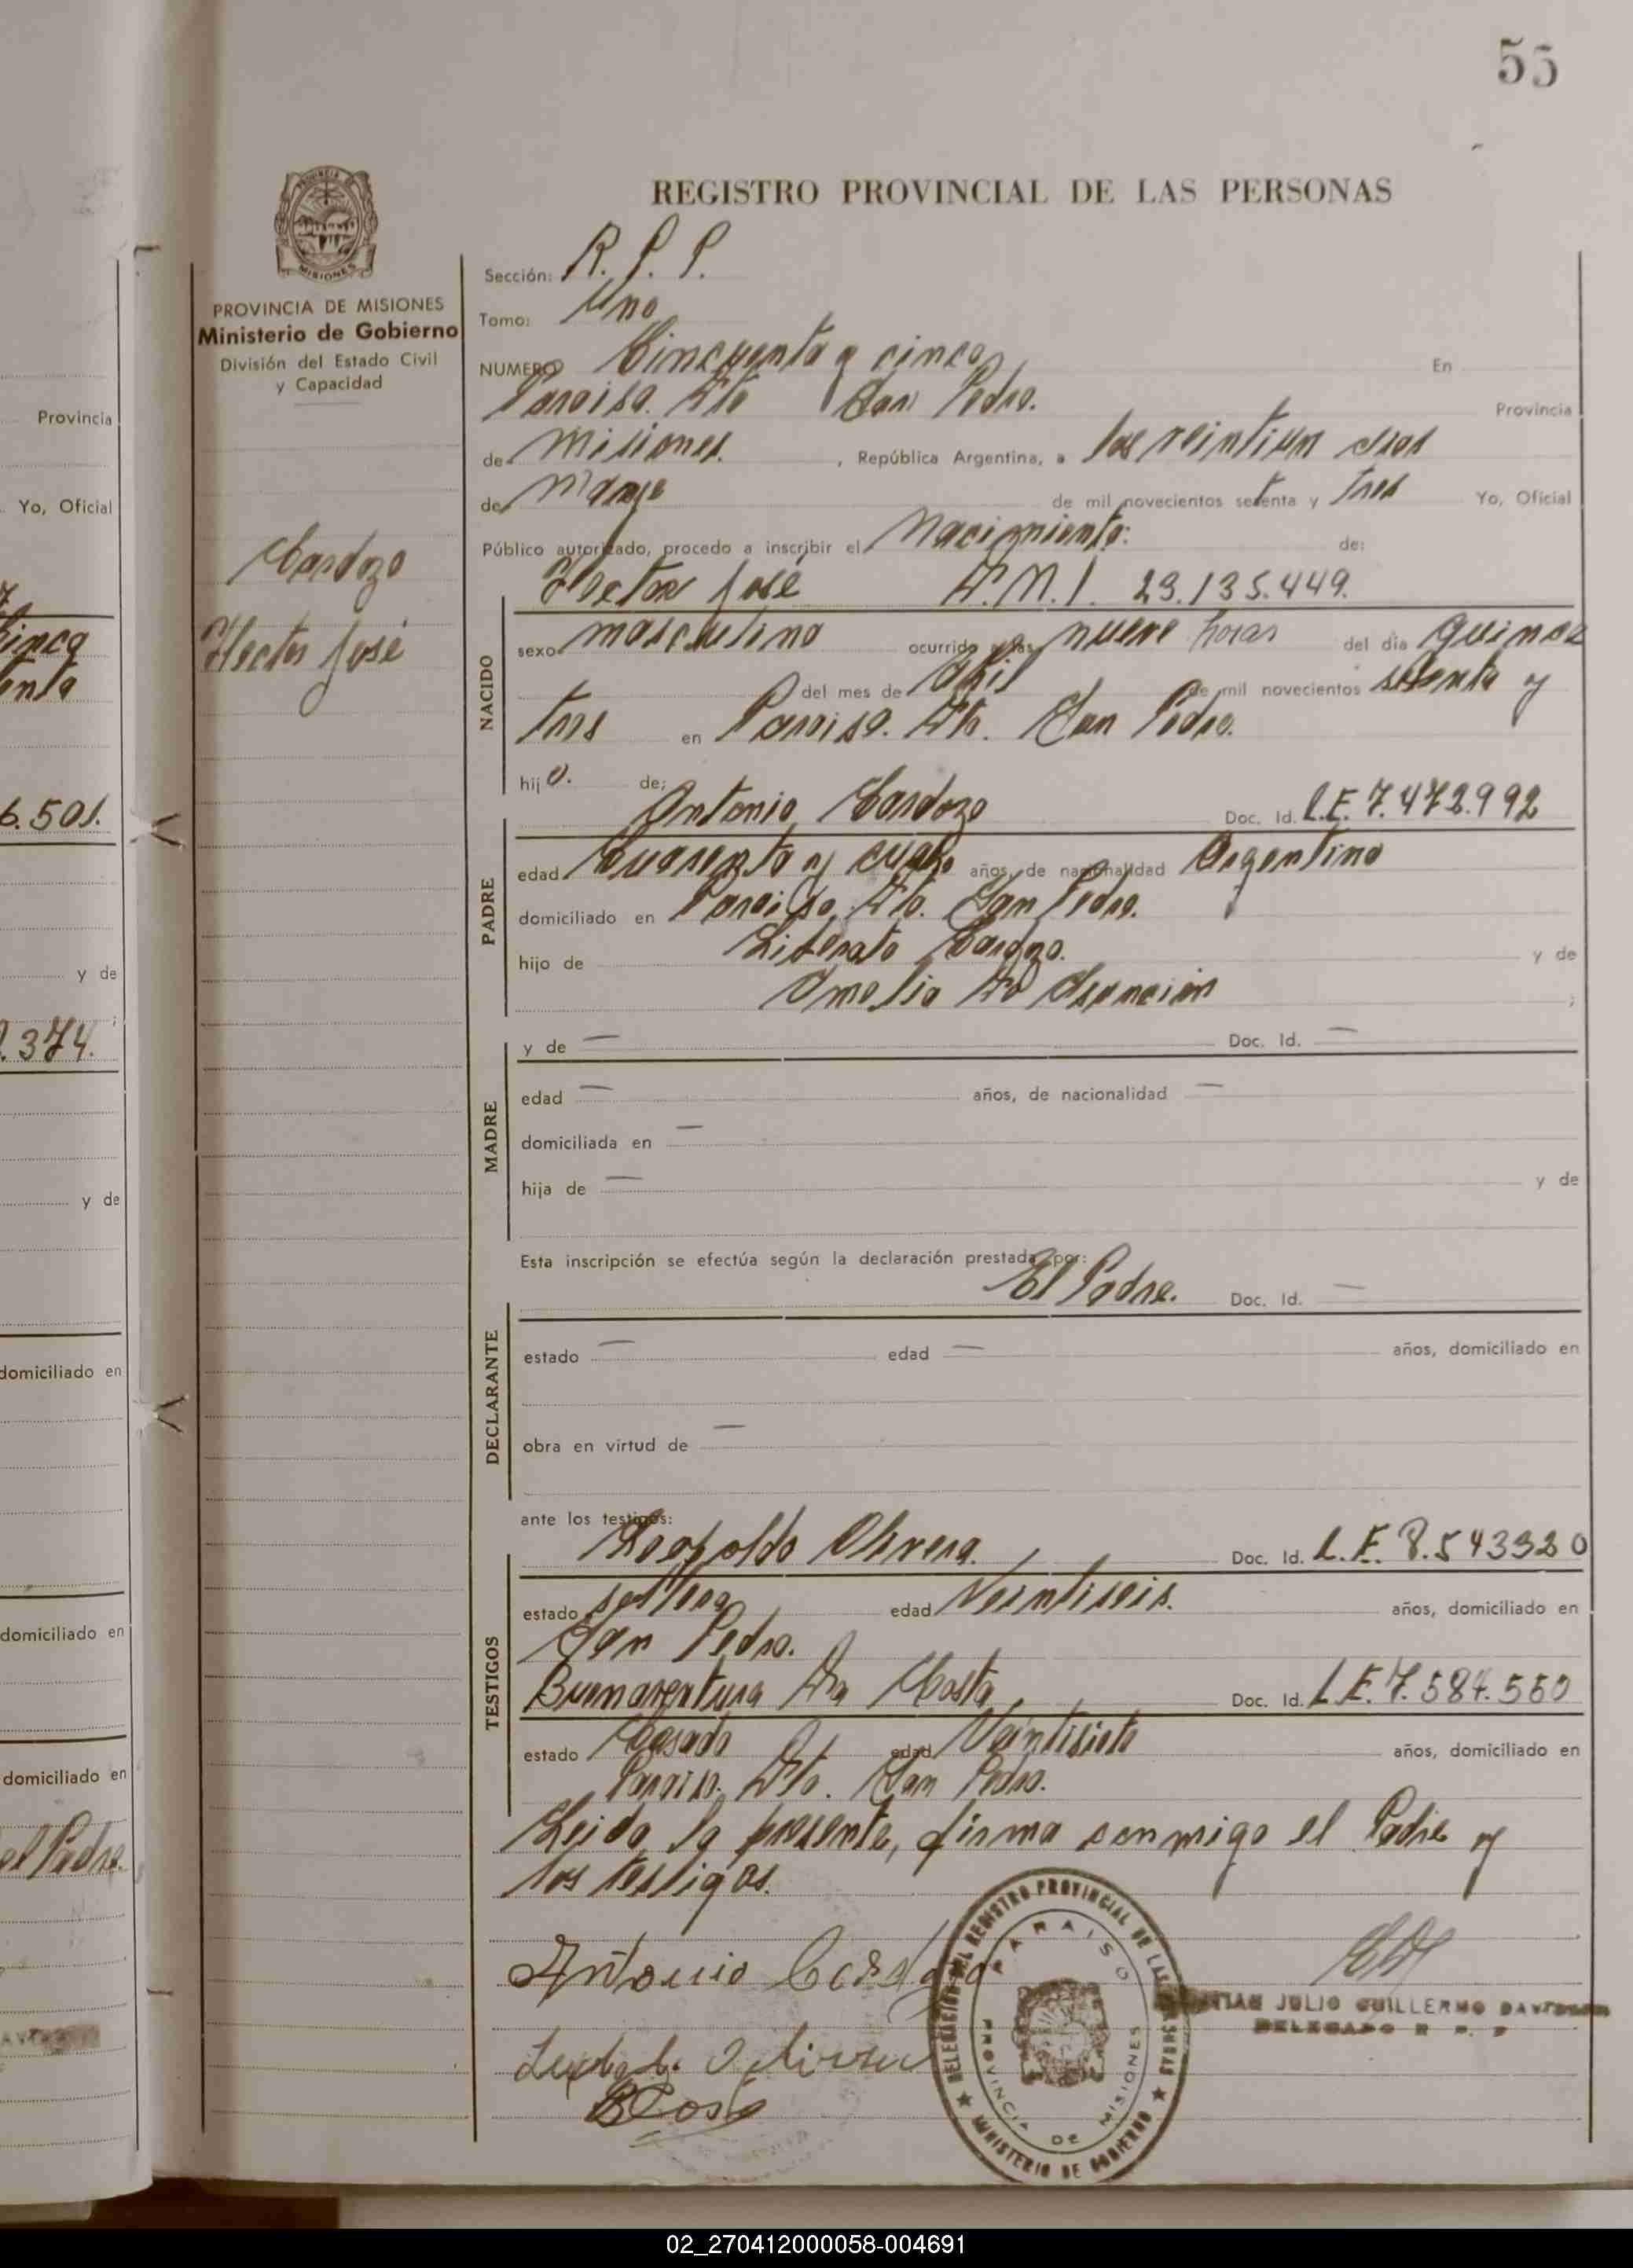 55
REGISTRO PROVINCIAL DE LAS PERSONAS
PROVINCIA DE MISIONES
Ministerio de Gobierno
División del Estado Civil
y Capacidad
Sección: R. P. P.
Tomo: Uno
NUMERO Cincuenta y cinco En
Paraiso. Dto San Pedro. Provincia
de Misiones. , República Argentina, a los veintiun dias
de Marzo de mil novecientos setenta y tres Yo, Oficial
Público autorizado, procedo a inscribir el Nacimiento: de:
Hector José D.N.I. 23.135.449.
Cardozo
Hector José
NACIDO
sexo masculino ocurrido a las nueve horas del dia quince
del mes de de mil novecientos setenta y
tres en Paraiso. Dto. San Pedro.
hijo. de;
PADRE
Antonio Cardozo Doc. Id. L.E. 7.472.992
edad Cuarenta y cuatro años, de nacionalidad Argentino
domiciliado en Paraiso, Dto. San Pedro.
hijo de Liberato Cardozo. y de
Amelia Asuncion ;
MADRE
y de — Doc. Id. —
edad — años, de nacionalidad —
domiciliada en —
hija de — y de
Esta inscripción se efectúa según la declaración prestada por:
DECLARANTE
El Padre. Doc. Id. —
estado — edad — años, domiciliado en
obra en virtud de —
ante los testigos:
TESTIGOS
Leopoldo Olivera. Doc. Id. L.E. 8.543320
estado soltero edad Veintiseis. años, domiciliado en
San Pedro.
Buenaventura Da Costa, Doc. Id. L.E. 7.584.550
estado Casado edad Veintisiete años, domiciliado en
Paraiso. Dto. San Pedro.
Leida la presente, firma conmigo el Padre y
los testigos.
Antonio Cardozo
DELEGACION DEL REGISTRO PROVINCIAL DE LAS PERSONAS
PARAISO
PROVINCIA DE MISIONES
MINISTERIO DE GOBIERNO
JULIO GUILLERMO
DELEGADO R. P. P
Provincia
Yo, Oficial
6.501.
y de
.374.
;
y de
domiciliado en
domiciliado en
domiciliado en
el Padre.
02_270412000058-004691